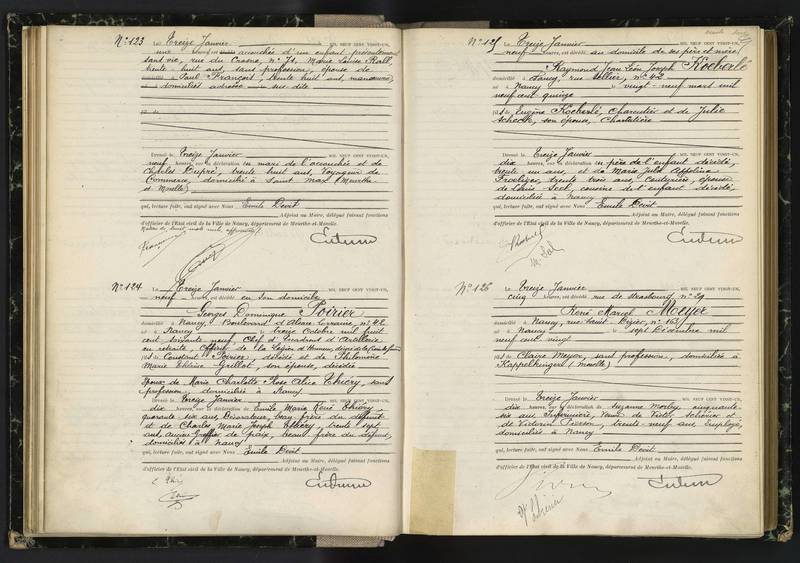 N° 123 Le Treize Janvier MIL NEUF CENT VINGT-UN,
une heure est accouchée d'un enfant présentement
sans vie, rue du Crosne, n° 71, Marie Louise
trente-huit ans, sans profession, épouse de
Paul François, trente huit ans, manoeuvre
domiciliés adresse sus-dite
Dressé le Treize Janvier MIL NEUF CENT VINGT-UN,
neuf heures, sur la déclaration du mari de l'accouchée et de
Charles Dupré, trente huit ans, Voyageur de
Commerce, domicilié à Saint Max (Meurthe
et Moselle)
qui, lecture faite, ont signé avec Nous Emile Devit
Adjoint au Maire, délégué faisant fonctions
d'officier de l'Etat civil de la Ville de Nancy, département de Meurthe-et-Moselle.
N° 124 Le Treize Janvier MIL NEUF CENT VINGT-UN,
neuf heures, est décédé en son domicile
Georges Dominique Poirier
domicilié à Nancy, Boulevard d'Alsace Lorraine, n° 42
né à Nancy le treize Octobre mil huit
cent soixante neuf, Chef d'Escadron d'Artillerie
en retraite, Officier de la Légion d'Honneur,
fils de Constant Poirier, décédé et de Philomène
Marie Thérèse Grillot, son épouse, décédée
Epoux de Marie Charlotte Rose Alice Thiéry, sans
profession, domiciliée à Nancy
Dressé le Treize Janvier MIL NEUF CENT VINGT-UN,
dix heures, sur la déclaration de Emile Marie René Thiéry,
quarante six ans, beau-frère du défunt
et de Charles Marie Joseph Thiéry, trente sept
ans, beau-frère du défunt,
domiciliés à Nancy
qui, lecture faite, ont signé avec Nous Emile Devit
Adjoint au Maire, délégué faisant fonctions
d'officier de l'Etat civil de la Ville de Nancy, département de Meurthe-et-Moselle.
N° 125 Le Treize Janvier MIL NEUF CENT VINGT-UN,
neuf heures, est décédé au domicile de ses père et mère
Raymond Jean Léon Joseph Koeberlé
domicilié à Nancy, rue n° 42
né à Nancy le vingt-neuf mars mil
neuf cent quinze
fils de Eugène Koeberlé, Charcutier et de Julie
son épouse, Charcutière
Dressé le Treize Janvier MIL NEUF CENT VINGT-UN,
dix heures, sur la déclaration du père de l'enfant décédé,
trente un ans, et de Maria
trente trois ans, Couturière, épouse
de Louis cousine de l'enfant décédé,
domiciliée à Nancy
qui, lecture faite, ont signé avec Nous Emile Devit
Adjoint au Maire, délégué faisant fonctions
d'officier de l'Etat civil de la Ville de Nancy, département de Meurthe-et-Moselle.
N° 126 Le Treize Janvier MIL NEUF CENT VINGT-UN,
cinq heures, est décédé rue de Strasbourg, n° 29
René Marcel Meyer
domicilié à Nancy, rue Saint Dizier, n° 163
né à Nancy le sept Décembre mil
neuf cent vingt
fils de Claire Meyer, sans profession, domiciliée à
Kappelkinger (Moselle)
Dressé le Treize Janvier MIL NEUF CENT VINGT-UN,
dix heures, sur la déclaration de Suzanne Morley, cinquante
six ans, Infirmière, Veuve de Victor et
de Victorin trente neuf ans, Employé,
domiciliés à Nancy
qui, lecture faite, ont signé avec Nous Emile Devit
Adjoint au Maire, délégué faisant fonctions
d'officier de l'Etat civil de la Ville de Nancy, département de Meurthe-et-Moselle.